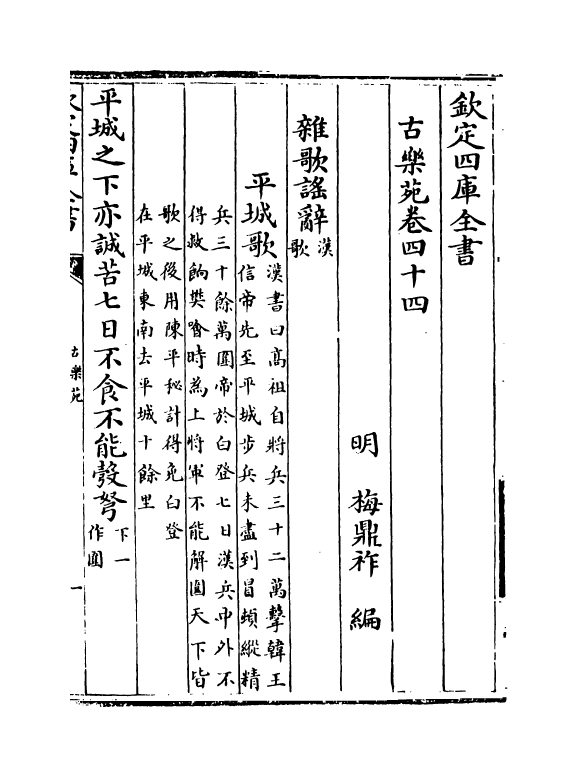 欽定四庫全書
古樂苑卷四十四
明 梅鼎祚 編
雜歌謠辭
漢
歌
平城歌
漢書曰高祖自將兵三十二萬擊韓王
信帝先至平城步兵未盡到冒頓縱精
兵三十餘萬圍帝於白登七日漢兵中外不
得救餉樊噲時為上將軍不能解圍天下皆
歌之後用陳平秘計得免白登
在平城東南去平城十餘里
平城之下亦誠苦七日不食不能彀弩
下一
作圍
古樂苑
一